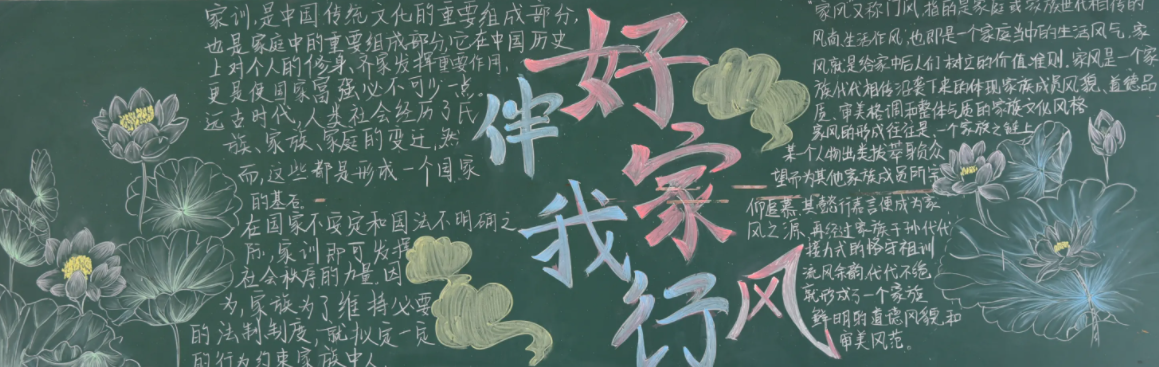 家训,是中国传统文化的重要组成部分,
也是家庭中的重要组成部分,它在中国历史
上对个人的修身、齐家发挥重要作用,
更是使国家富强必不可少一点。
远古时代,人类社会经历了氏
族、家族、家庭的变迁,然
而,这些都是形成一个国家
的基石
在国家不安定和国法不明确之
际,家训即可发挥
社会秩序的力量,因
为,家族为了维持必要
的法制制度,就拟定一定
的行为约束家族中人
好家风
伴我行
"家风又称门风,指的是家庭或家族世代相传的
风尚,生活作风,也即是一个家庭当中的生活风气,家
风就是给家中后人们树立的价值准则,家风是一个家
族代代相传沿袭下来的体现家族成员风貌、道德品
质、审美格调和整体气质的家族文化风格
家风的形成往往是一个家族之链上
某个人物出类拔萃身负众
望而为其他家族成员所宗
仰追慕,其懿行嘉言便成为家
风之源,再经过家族子孙代代
接力式的恪守祖训
流风余韵,代代不绝
就形成了一个家族
鲜明的道德风貌和
审美风范。